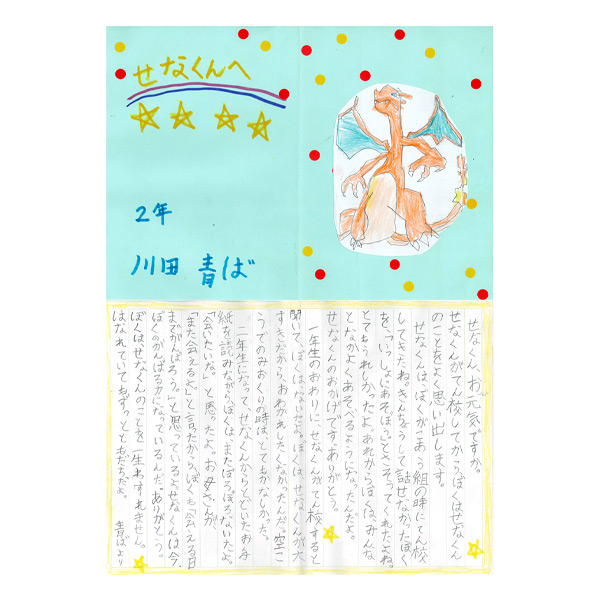 せなくんへ
2年
川田 青ば
せなくん、お元気ですか。
せなくんがてん校してからぼくはせなくん
のことをよく思い出します。
せなくんは、ぼくがあう組の時にてん校
してきたね。きんちょうして話せなかったぼく
を、「いっしょにあそぼう」とさそってくれたよね。
とてもうれしかったよ。あれからぼくは、みんな
となかよくあそべるようになったんだよ。
せなくんのおかげです。ありがとう。
一年生のおわりに、せなくんがてん校すると
聞いて、ぼくはないたよ。ぼくは、せなくんが大
すきだから、おわかれしたくなかったんだ。空こ
うでのみおくりの時は、とてもかなしかった。
二年生になって、せなくんからとどいたお手
紙を読みながら、ぼくは、またぽろぽろないたよ。
「会いたいな。」と思ったよ。お母さんが、
「また会えるよ」と言ったから、ぼくも「会える日
までがんばろう。」と思っているよ。せなくんは今、
ぼくのがんばる力になっているんだ。ありがとう。
ぼくは、せなくんのことを一生わすれません。
はなれていてもずっとともだちだよ。
青ばより